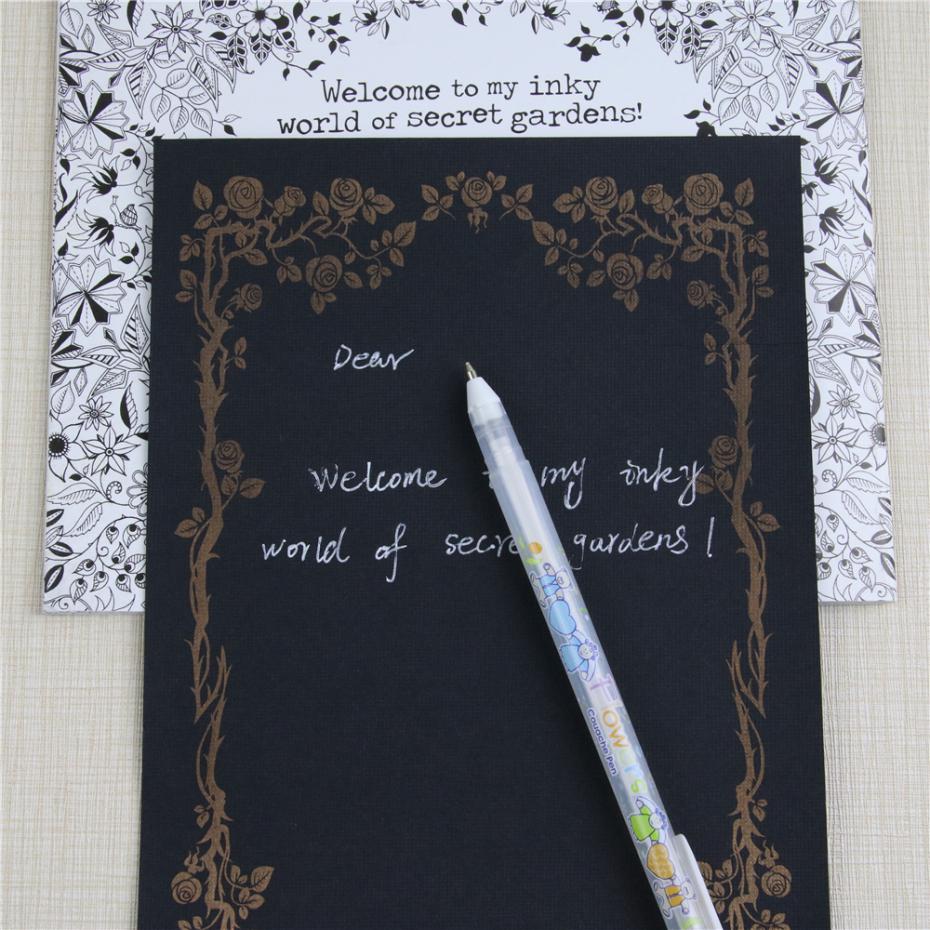 Welcome to my inky
world of secret gardens!
Dear
Welcome my inky
world of secre gardens!
Flowers
Couache Pen